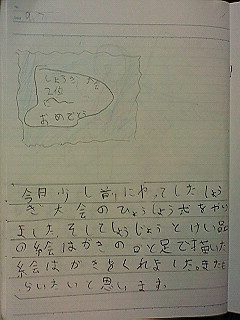 しょうき 大会
2位
おめでとう
今日少し前にやってしたしょう
き大会のひょうしょう式をやり
ました。そしてしょうじょうとけい品
の絵はがきの口と足で描いた
絵はがきをくれました。またも
らいたいと思います。